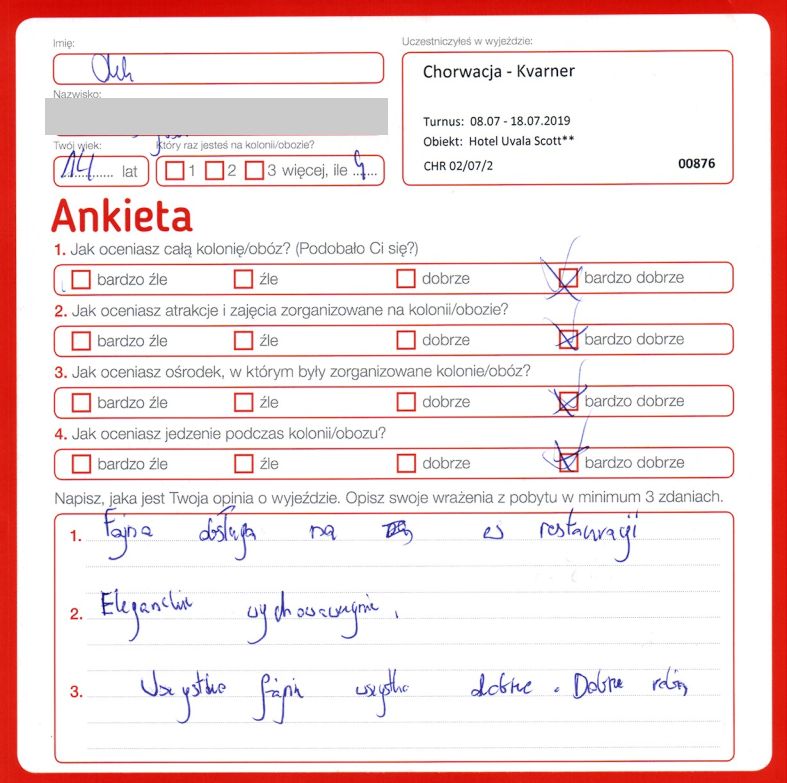 Imię:
Uczestniczyłeś w wyjeździe:
Olek
Chorwacja - Kvarner
Nazwisko:
Turnus: 08.07 - 18.07.2019
Twój wiek:
Który raz jesteś na kolonii/obozie?
Obiekt: Hotel Uvala Scott**
14 lat
1 2 3 więcej, ile
CHR 02/07/2 00876
Ankieta
1. Jak oceniasz całą kolonię/obóz? (Podobało Ci się?)
bardzo źle źle dobrze bardzo dobrze
2. Jak oceniasz atrakcje i zajęcia zorganizowane na kolonii/obozie?
bardzo źle źle dobrze bardzo dobrze
3. Jak oceniasz ośrodek, w którym były zorganizowane kolonie/obóz?
bardzo źle źle dobrze bardzo dobrze
4. Jak oceniasz jedzenie podczas kolonii/obozu?
bardzo źle źle dobrze bardzo dobrze
Napisz, jaka jest Twoja opinia o wyjeździe. Opisz swoje wrażenia z pobytu w minimum 3 zdaniach.
1. Fajna na w restauracji
2. Eleganckie
3. Wszystko fajnie wszystko dobrze. Dobrze robią